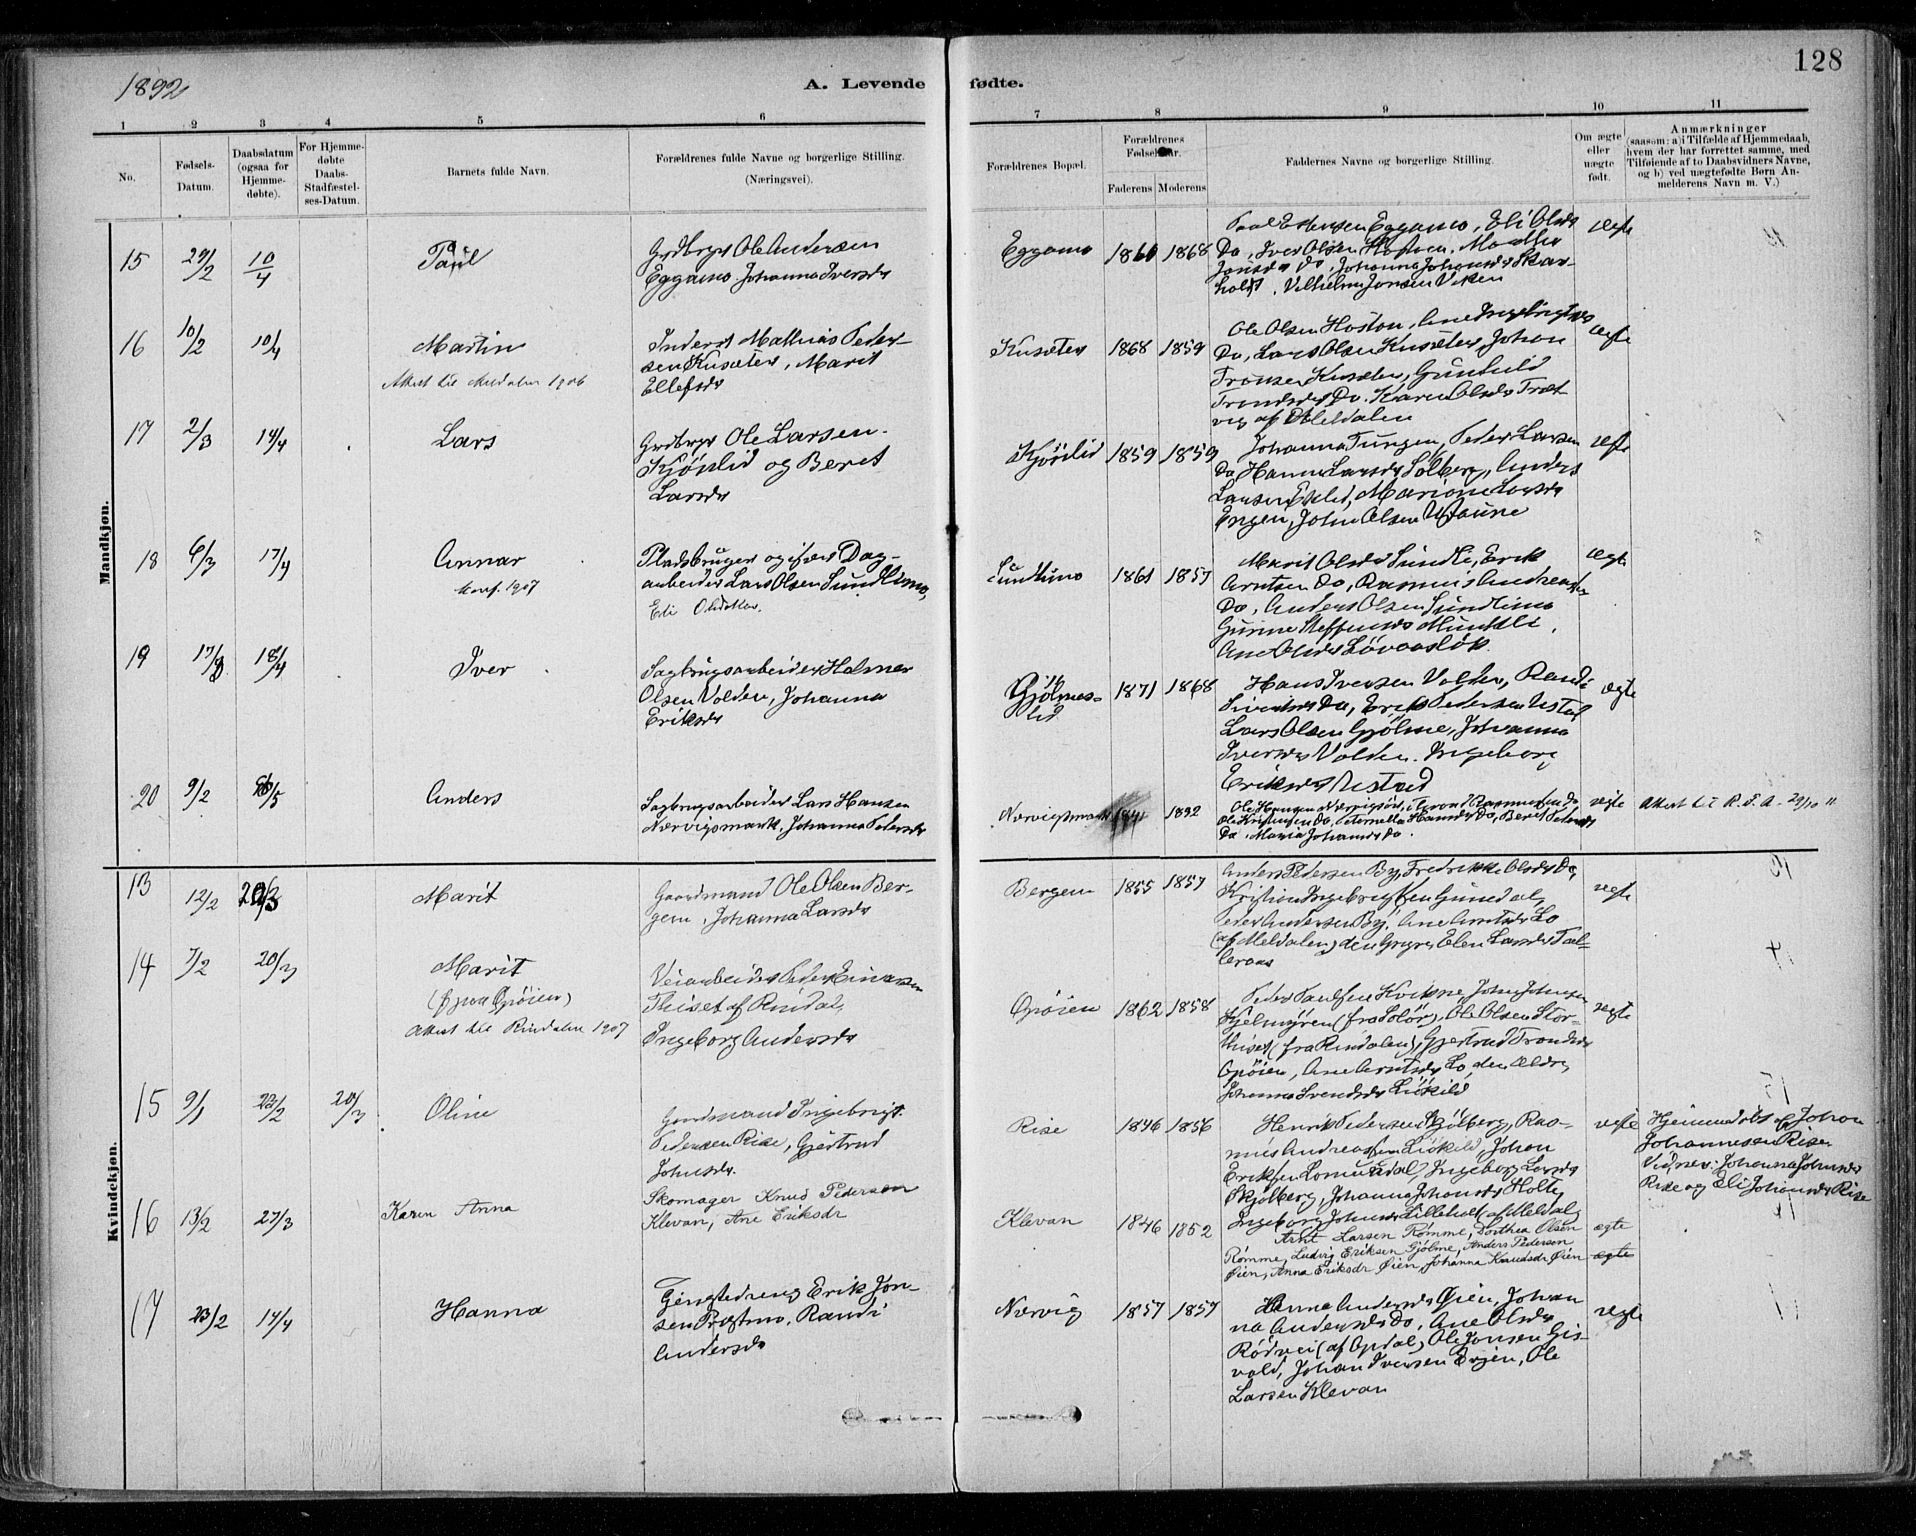 1892
A. Levende fødte.
128
1 2 3 4 5 6 7 8 9 10 11
No.
Fødsels-
Datum.
Daabsdatum
(ogsaa for
Hjemme-
døbte).
For Hjemme-
døbte
Daabs-
Stadfæstel-
ses-Datum.
Barnets fulde Navn.
Forældrenes fulde Navne og borgerlige Stilling.
(Næringsvei).
Forældrenes Bopæl.
Forældrenes
Fødselsaar.
Faderens Moderens
Faddernes Navne og borgerlige Stilling.
Om ægte
eller
uægte
født.
Anmærkninger
(saasom: a) i Tilfælde af Hjemmedaab,
hvem der har forrettet samme, med
Tilføiende af to Daabsvidners Navne,
og b) ved uægtefødte Børn An-
melderens Navn m. V.)
Mandkjøn.
15 29/2 10/4 Paul
Grdbrgr Ole Andersen
Eggamo. Johanna Iversdr
Eggamo 1860 1868
Paal Estensen Eggamo, Eli Olsdr
Do, Iver Olsen Hoston, Marthe
Jonsdr Do, Johanna Johansdr Skar-
holt. Vilhelm Jonsen Viken
ægte
16 10/2 10/4 Martin
Attest til Meldalen 1906
Inderst Mathias Peder-
sen Kusæter, Marit
Ellefsdr
Kusæter 1868 1859
Ole Olsen Hoston, Ane Ingebrigtsdr
Do, Lars Olsen Kusæter, Johan
Tronsen Kusæter, Gunhild
Trondsdr Do. Karen Olsdr Træt-
vig af Meldalen
ægte
17 2/3 14/4 Lars
Grdbrgr Ole Larsen
Kjørlid og Beret
Larsdr
Kjørlid 1859 1859
Johanna Tungen, Peder Larsen
Do, Hanna Larsdr Solberg, Anders
Larsen Eklid, Marione Larsdr
Engen, John Olsen Ustaune
ægte
18 6/3 17/4 Annar
konf. 1907
Pladsbruger og ifver Dag-
arbeider Lars Olsen Sundlimo,
Eli Olsdtter.
Sundlimo 1861 1857
Marit Olsdr Sundli, Erik
Arntsen Do, Rasmus Andreassen
Do, Anders Olsen Sundlimo
Gurine Steffensdr Muntli,
Ane Olsdr Løvaasløk
ægte
19 17/3 18/4 Iver
Sagbrugsarbeider Halmer
Olsen Volden, Johanna
Eriksdr
Gjølmes-
lid 1871 1868
Hans Iversen Volden, Randi
Sivertsdr Do, Erik Pedersen Nestad
Lars Olsen Gjølme, Johanna
Iversdr Volden. Ingeborg
Eriksdr Nestad
ægte
20 9/2 26/5 Anders
Sagbrugsarbeider Lars Hansen
Nærvigsmark, Johanna Pedersdr
Nærvigsmark 1841 1892
Ole Hansen Nærvigsøre, Rasmusen Do
Ole Kristensen Do, Pernella Hansdr Do, Beret Pedersdr
Do. Maria Johansdr Do.
ægte Attest til R. S. A. 29/10 11
Kvindekjøn.
13 12/2 20/3 Marit
Gaardmand Ole Olsen Ber-
gem, Johanna Larsdr
Bergem 1855 1857
Anders Pedersen By, Fredrikke Olsdr Do,
Kristian Ingebrigtsen Gundal,
Peder Andersen By, Ane Arntsdr Lo
(af Meldalen) den yngre, Elen Larsdr Tæl-
leraas
ægte
14 7/2 20/3 Marit
(fjran Opøien)
Attest til Rindalen 1907
Veiarbeider Peder Einarsen
Thiset af Rindal,
Ingeborg Andersdr
Opøien 1862 1858
Peder Paulsen Kvikne, John Johnsen
Kjelmyren (fra Solør), Ole Olsen Stor-
thiset (fra Rindalen), Gjertrud Trondsdr
Opøien, Ane Arntsdr Lo, den Ældre,
Johanna Svendsdr Liøkild
ægte
15 9/1 22/2 20/3 Oline
Gaardmand Ingebrigt
Pedersen Rise, Gjertrud
Johnsdr.
Rise 1846 1856
Henrik Pedersen Skjølberg, Ras-
mus Andreassen Liøkild, Johan
Eriksen Lomundal, Ingeborg Larsdr
Skjølberg, Johanna Johansdr Holte,
Ingeborg Johnsdr Lilleholt af Meldal,
ægte
Hjemmedøbt af Johan
Johannesen Rise
Vidner: Johanna Johnsdr
Rise og Eli Johansdr Rise
16 13/2 27/3 Karen Anna
Skomager Knud Pedersen
Klevan, Ane Eriksdr
Klevan 1846 1852
Arnt Larsen Rømme, Dorthea Olsen
Rømme, Ludvig Eriksen Gjølme, Anders Pedersen
Øien, Anna Eriksdr Øien, Johanna Knudsdr Øien
ægte
ægte
17 23/2 14/4 Hanna
Gingsdreng Erik Jon-
sen Præstmo, Randi
Andersdr
Nærvig 1857 1857
Hanna Andersdr Øien, Johan-
na Andersdr Do, Ane Olsdr
Rødvei (af Opdal) Ole Jonsen Gis-
vold, Johan Iversen Engen, Ole
Larsen Klevan
ægte